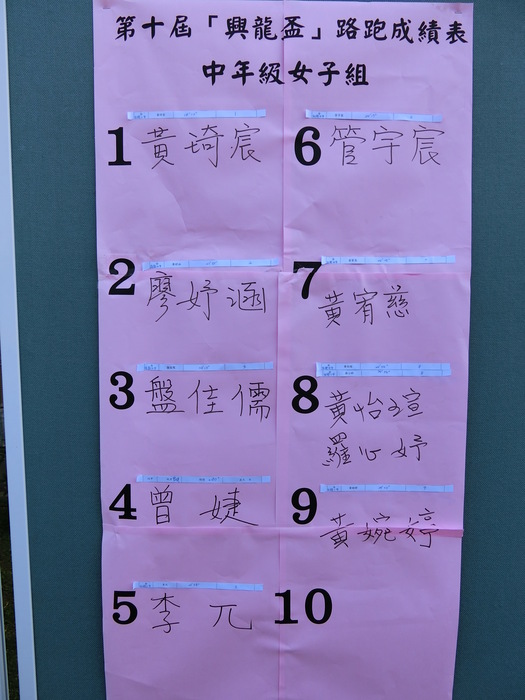 第十屆「興龍盃」路跑成績表
中年級女子組
1 黃琦宸
2 廖妤涵
3 盤佳儒
4 曾婕
5 李兀
6 管宇宸
7 黃宥慈
8 黃怡瑄
羅心妤
9 黃婉婷
10